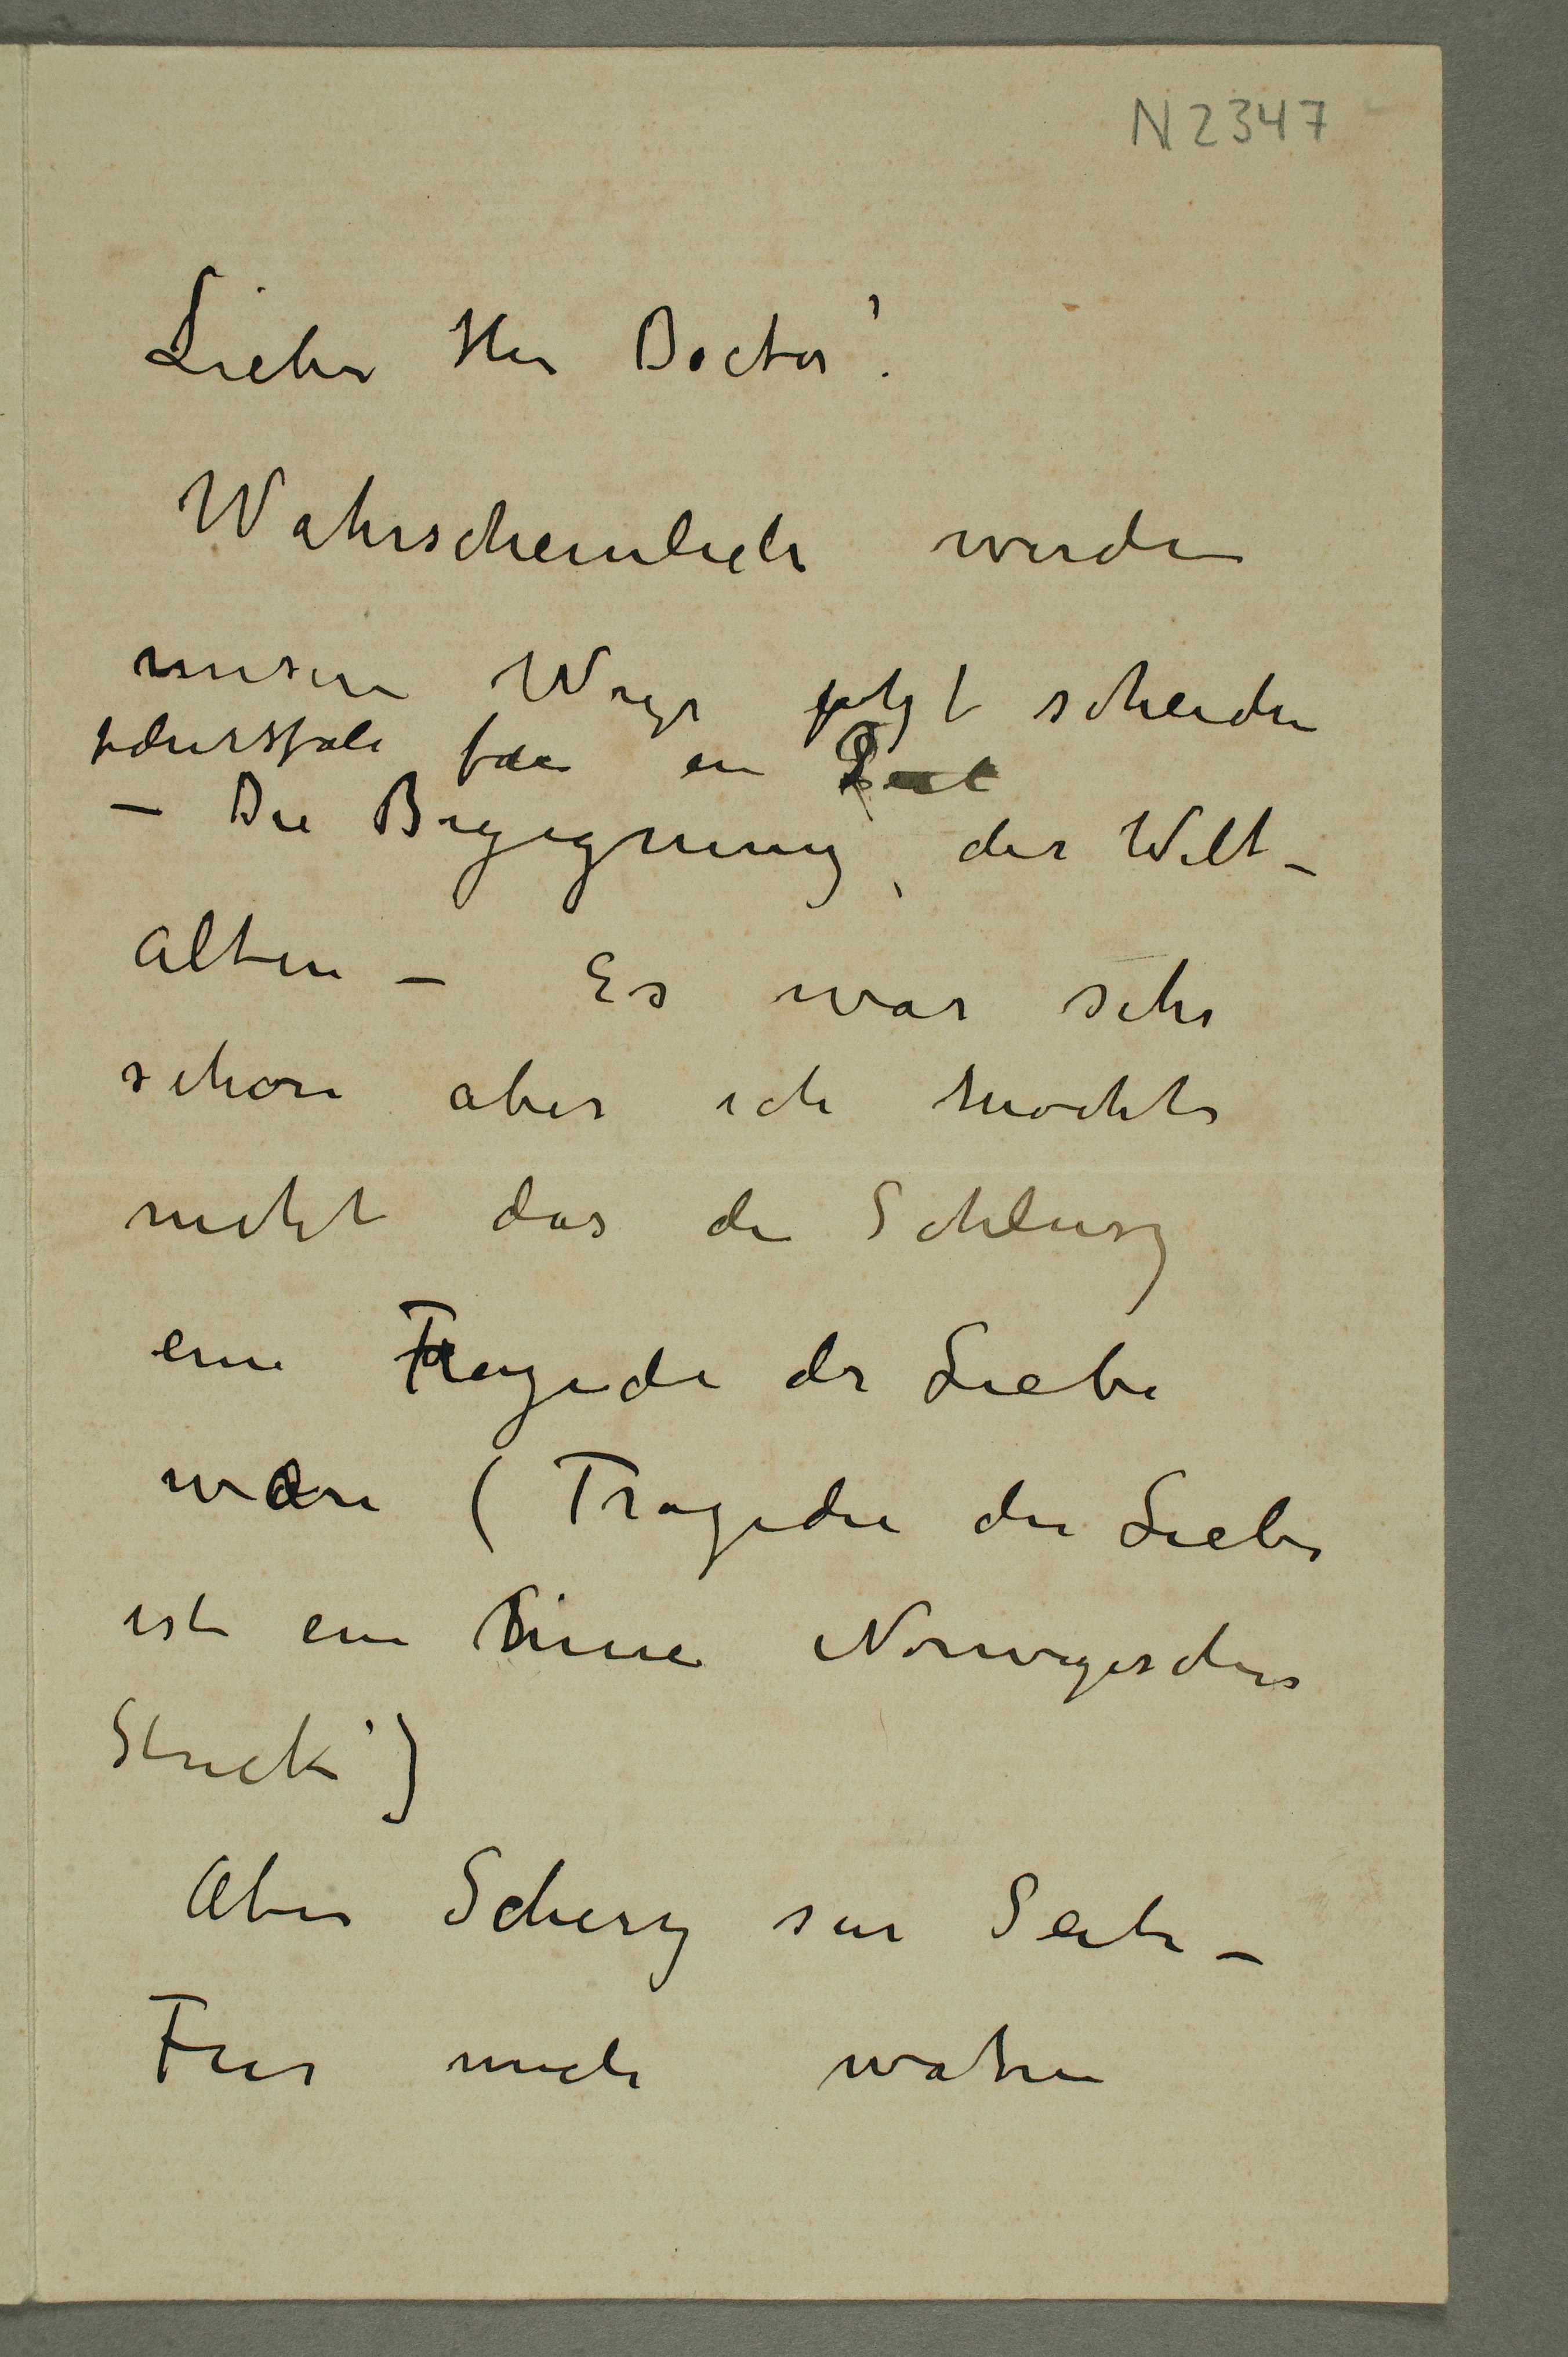 N 2347
Lieber Herr Doctor!
Wahrscheinlich werden
unsere Wege jetzt scheiden
jedensfals für en Zeit
– Die Begegnung der Welt –
alten – Es war sehr
schön aber ich möchte
nicht das der Schlusz
eine Tragedie der Liebe
wäre (Tragedie der Liebe
ist ein Norwegisches
Stück)
Aber Scherz sur Seite –
Für mich wahren